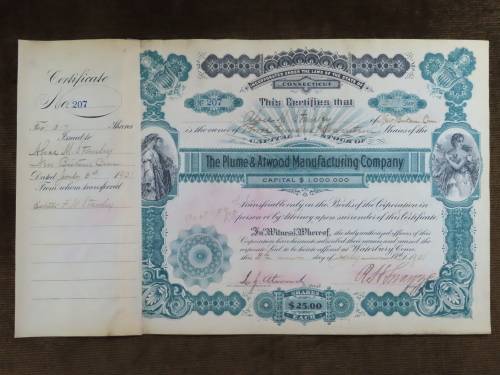 Certificate
No. 207
For 27 Shares
Issued to
Alice M. Stanley
New Britain Conn
Dated 8th 1901
From whom transferred
INCORPORATED UNDER THE LAWS OF THE STATE OF
CONNECTICUT
No 207
This Certifies that
Alice M. Stanley of New Britain Conn
is the owner of Shares of the
CAPITAL STOCK OF
The Plume & Atwood Manufacturing Company
CAPITAL $1,000,000
transferable only on the Books of the Corporation in
person or by Attorney upon surrender of this Certificate.
In Witness Whereof, the duly authorized officers of this
Corporation have hereunto subscribed their names and caused the
corporate Seal to be hereto affixed at Waterbury Conn
this day of 1901
SHARES
$25.00
EACH